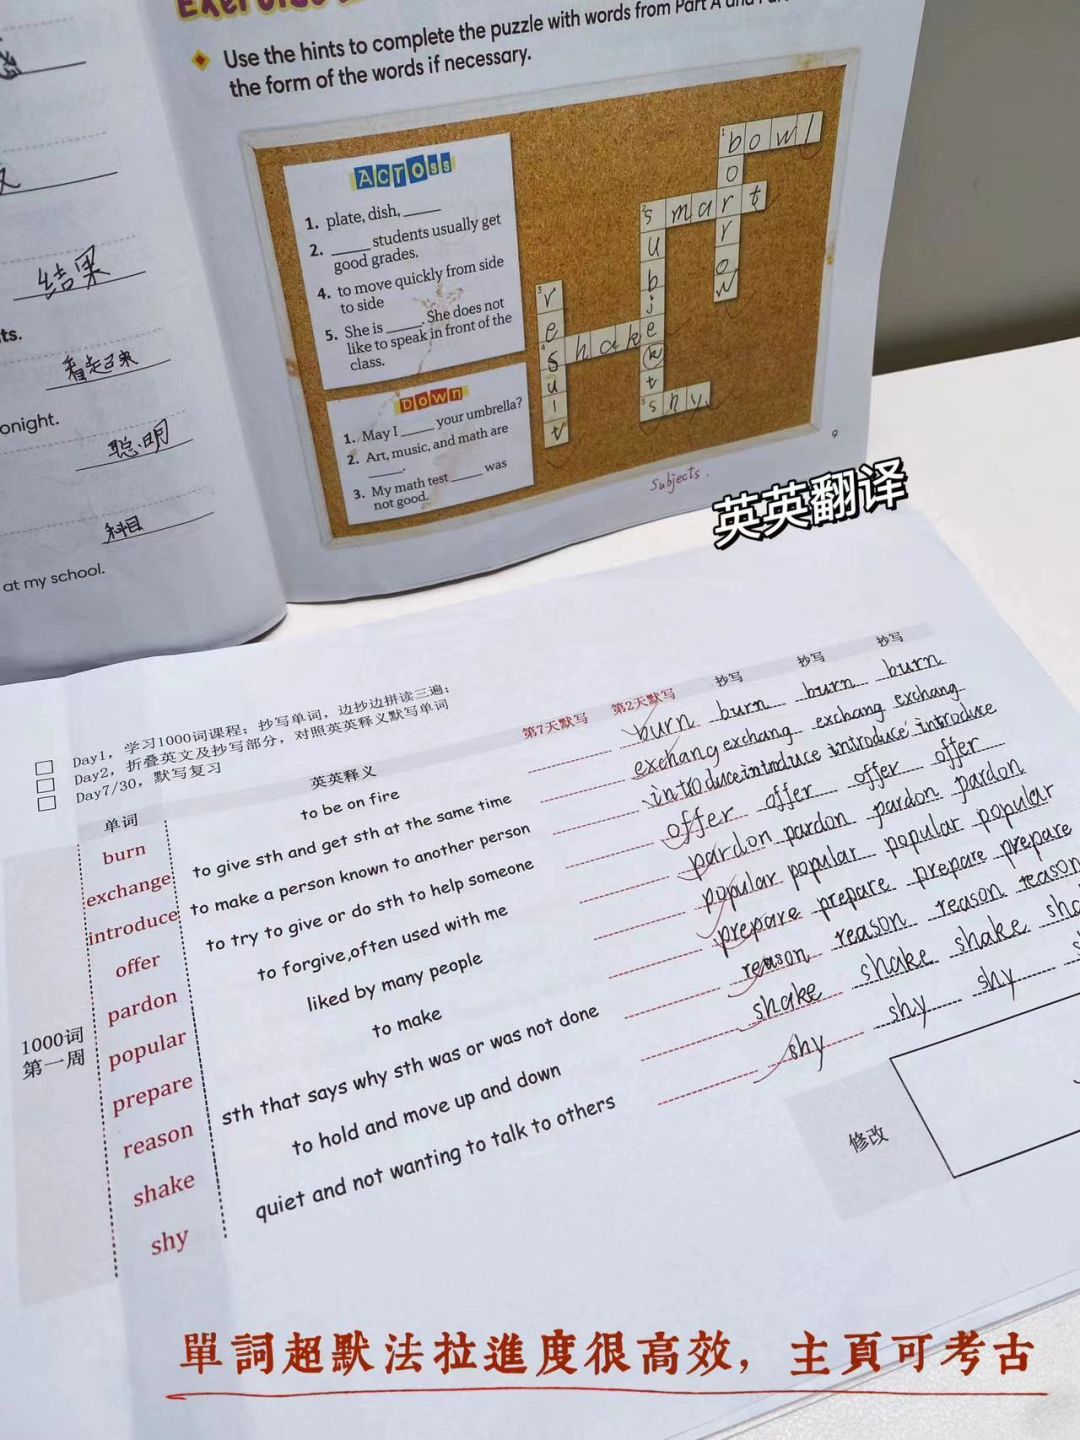 Use the hints to complete the puzzle with words from Part A and
the form of the words if necessary.
Across
1. plate, dish, _____
2. _____ students usually get
good grades.
4. to move quickly from side
to side
5. She is _____. She does not
like to speak in front of the
class.
Down
1. May I _____ your umbrella?
2. Art, music, and math are
_____.
3. My math test _____ was
not good.
bowl
borrow
smart
result
shake
shy
Subjects.
9
结果
ts.
看起来
onight.
聪明
科目
at my school.
英英翻译
Day1, 学习1000词课程; 抄写单词, 边抄边拼读三遍;
Day2, 折叠英文及抄写部分, 对照英英释义默写单词
Day7/30, 默写复习
单词 英英释义 第7天默写 第2天默写 抄写 抄写 抄写
1000词
第一周
burn to be on fire burn burn burn burn
exchange to give sth and get sth at the same time exchang exchang exchang exchang
introduce to make a person known to another person introduce introduce introduce introduce
offer to try to give or do sth to help someone offer offer offer offer
pardon to forgive,often used with me pardon pardon pardon pardon
popular liked by many people popular popular popular popular
prepare to make prepare prepare prepare prepare
reason sth that says why sth was or was not done reason reason reason reason
shake to hold and move up and down shake shake shake sha
shy quiet and not wanting to talk to others shy shy shy s
修改
單詞超默法拉進度很高效，主頁可考古